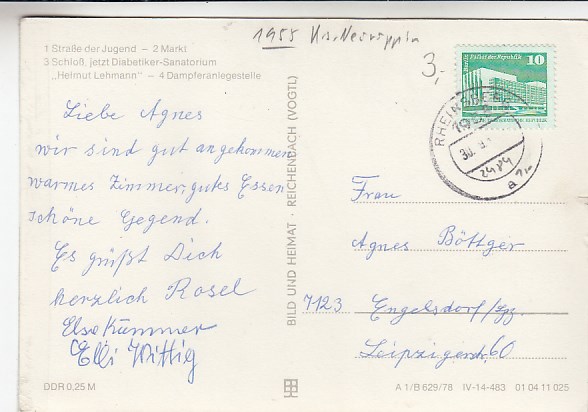 1955 Kr. Neuruppin
3,-
1 Straße der Jugend – 2 Markt
3 Schloß, jetzt Diabetiker-Sanatorium
„Helmut Lehmann" – 4 Dampferanlegestelle
10
Palast der Republik
RHEINSBERG
1955
2484
a
Liebe Agnes
wir sind gut angekommen
warmes Zimmer, gutes Essen
schöne Gegend.
Es grüßt Dich
herzlich Rosel
Else Kümmer
Elli Wittig
BILD UND HEIMAT · REICHENBACH (VOGTL)
Frau
Agnes Böttger
7123 Engelsdorf/Lpz.
Leipzigerstr. 60
DDR 0,25 M
A 1/B 629/78 IV-14-483 01 04 11 025